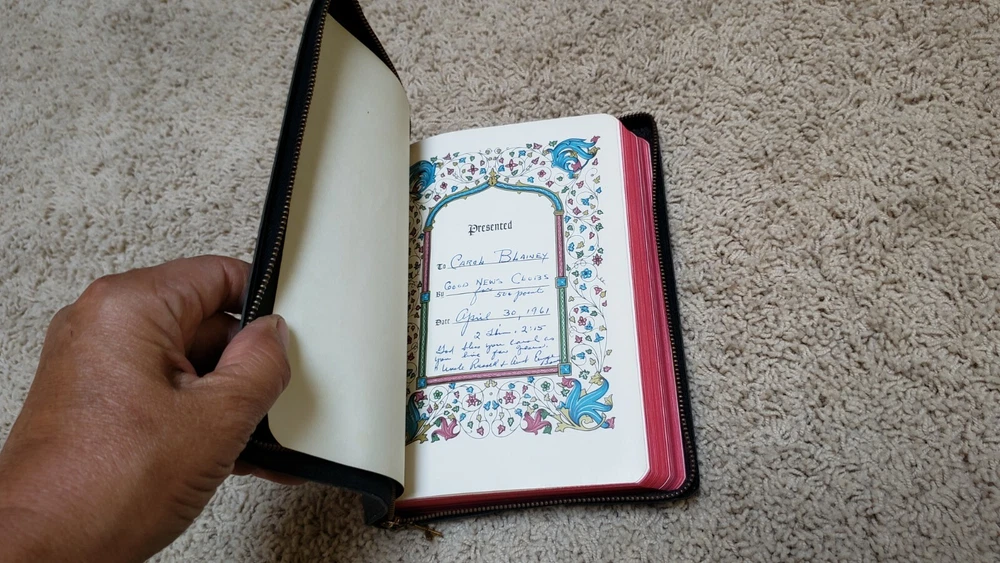 Presented
To Carol Blainey
Good News Clubs
By for 500 points
Date April 30, 1961
2 Tim. 2:15
God bless you Carol as
you live for Jesus.
Uncle Russell & Aunt